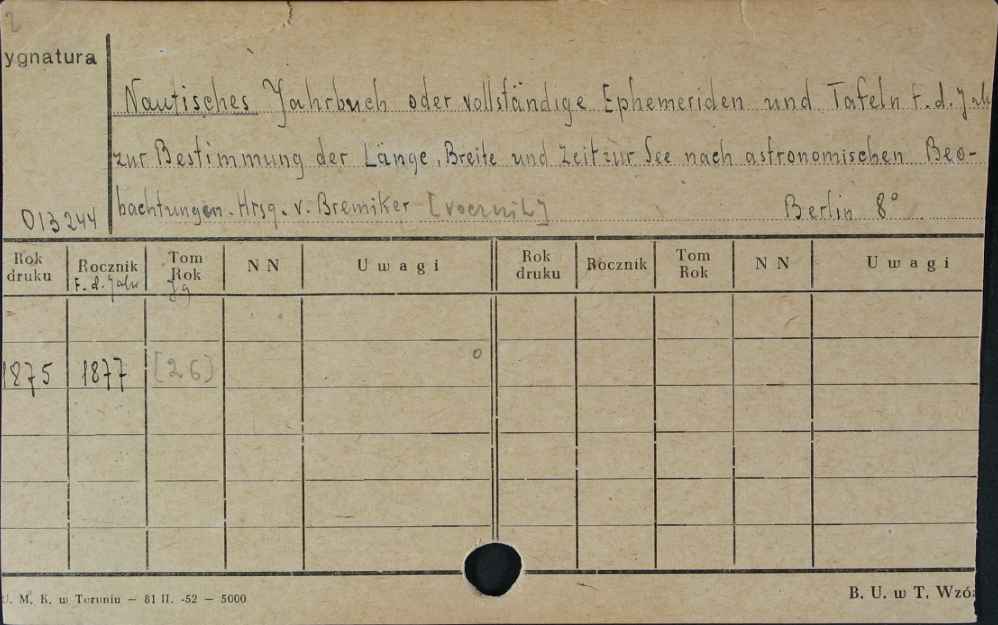 2
ygnatura
Nautisches Jahrbuch oder vollständige Ephemeriden und Tafeln f. d. Jah
zur Bestimmung der Länge, Breite und Zeit zur See nach astronomischen Beo-
bachtungen. Hrsg. v. Bremiker Berlin 8°
013244
Rok druku Rocznik f. d. Jahr Tom Rok Jg NN Uwagi Rok druku Rocznik Tom Rok NN Uwagi
1875 1877 [26] o
U. M. K. w Toruniu — 81 II. -52 — 5000 B. U. w T. Wzó